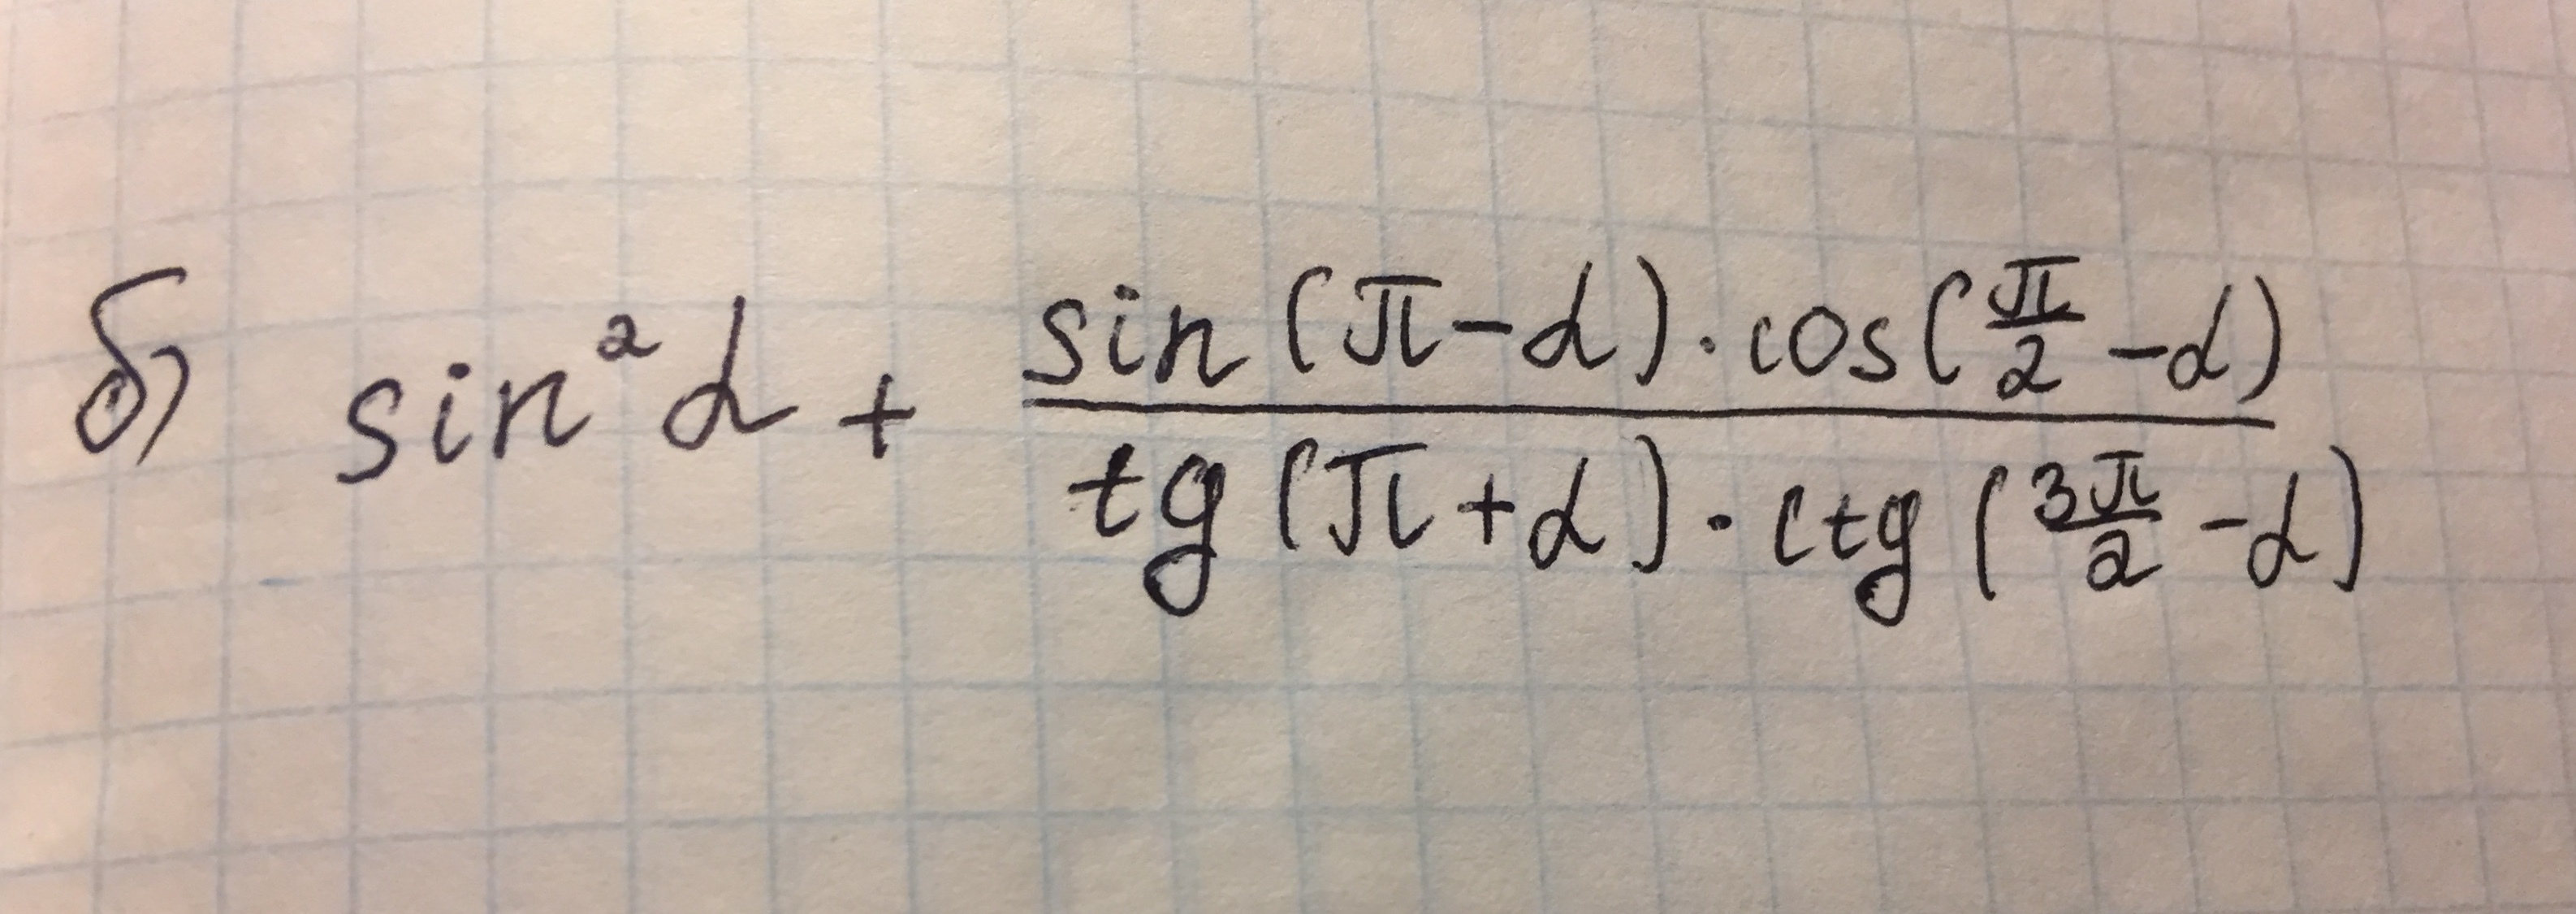 б) sin²α + \frac{sin(π-α)·cos(\frac{π}{2}-α)}{tg(π+α)·ctg(\frac{3π}{2}-α)}